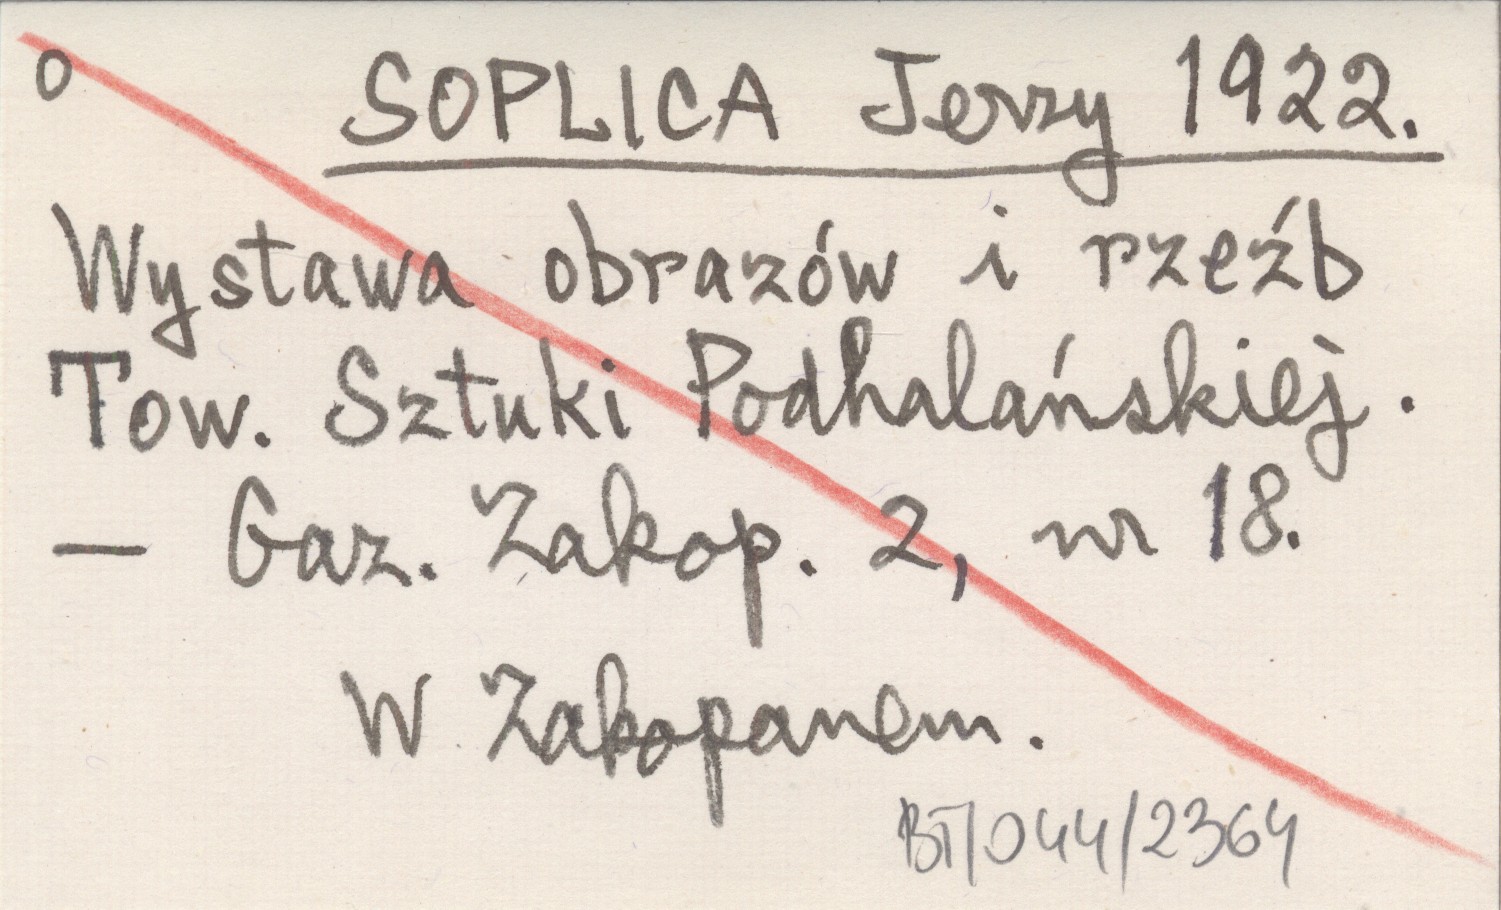 o SOPLICA Jerzy 1922.
Wystawa obrazów i rzeźb
Tow. Sztuki Podhalańskiej.
— Gaz. Zakop. 2, nr 18.
W Zakopanem.
BT/044/2364